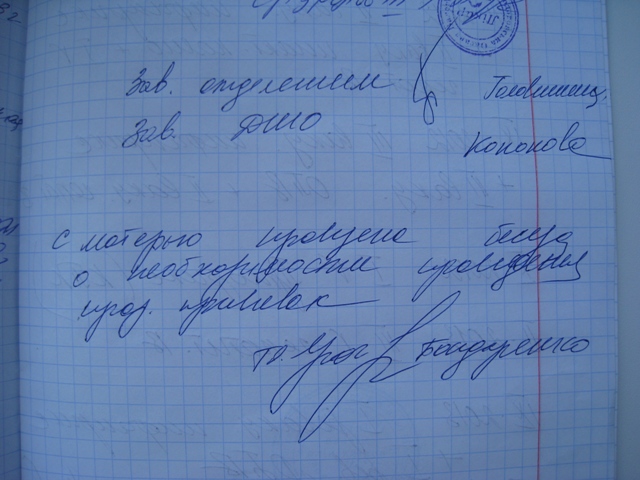 Зав. отделением Головинец,
Зав. ДШО Кононова
с матерью проведена беседа
о необходимости проведения
проф. прививок
Бондаренко